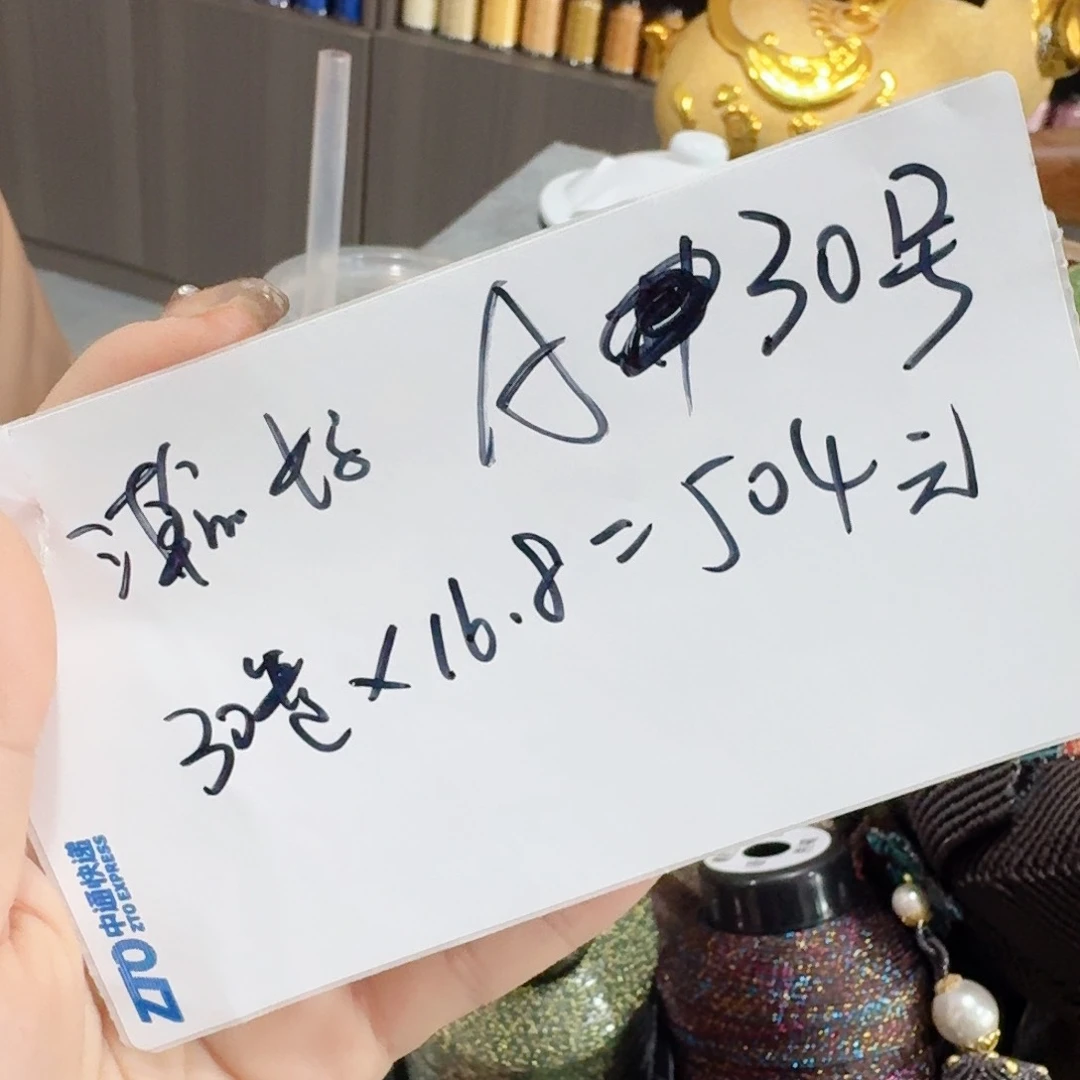 A 30号
30卷×16.8=504元
ZTO 中通快递
ZTO EXPRESS